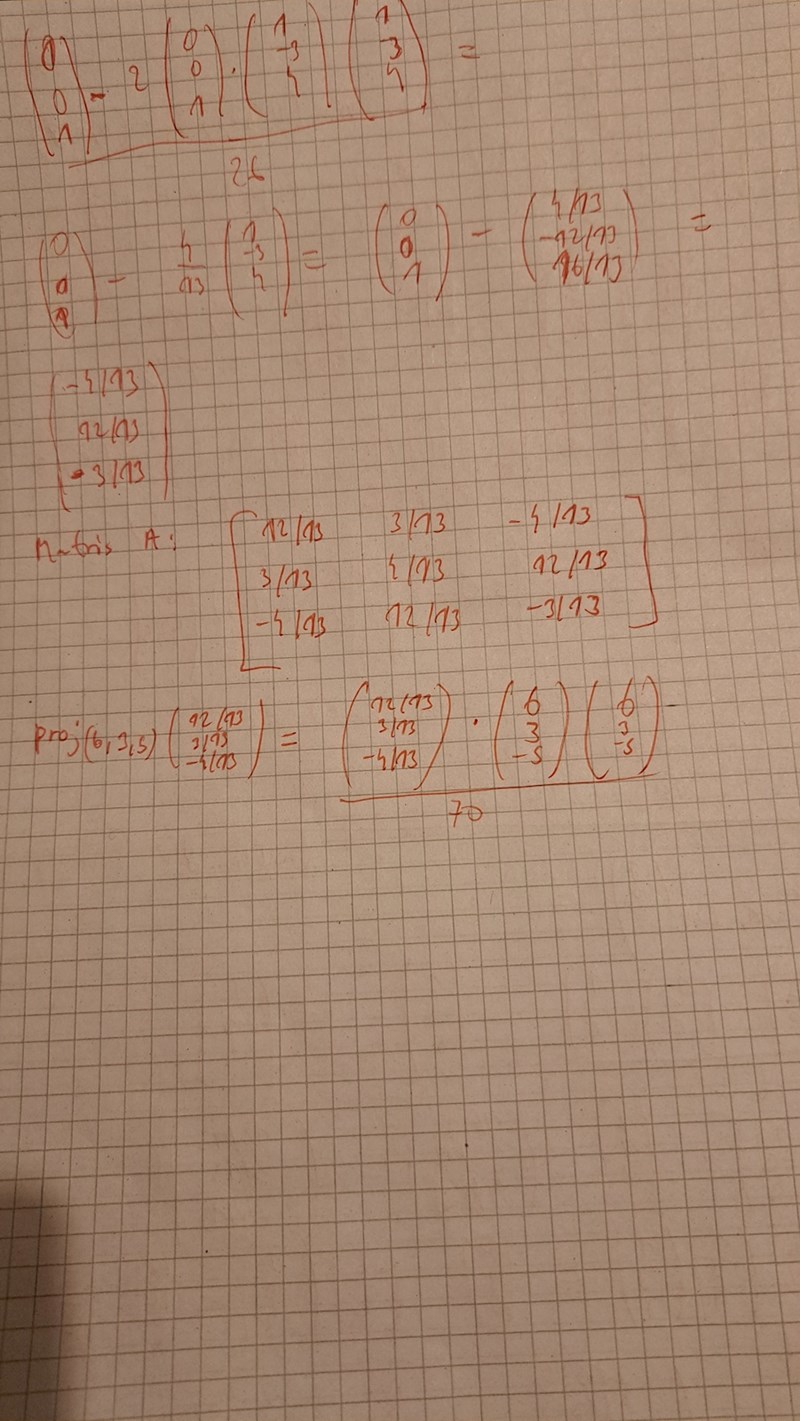 (0 0 1) - 2 (0 0 1) · (1 -3 4) (1 -3 4) =
26
(0 0 1) - 4/13 (1 -3 4) = (0 0 1) - (4/13 -12/13 16/13) =
(-4/13 12/13 -3/13)
Matris A: [12/13 3/13 -4/13
3/13 4/13 12/13
-4/13 12/13 -3/13]
proj(6,3,5) (12/13 3/13 -4/13) = (12/13 3/13 -4/13) · (6 3 -5) (6 3 -5) -
70